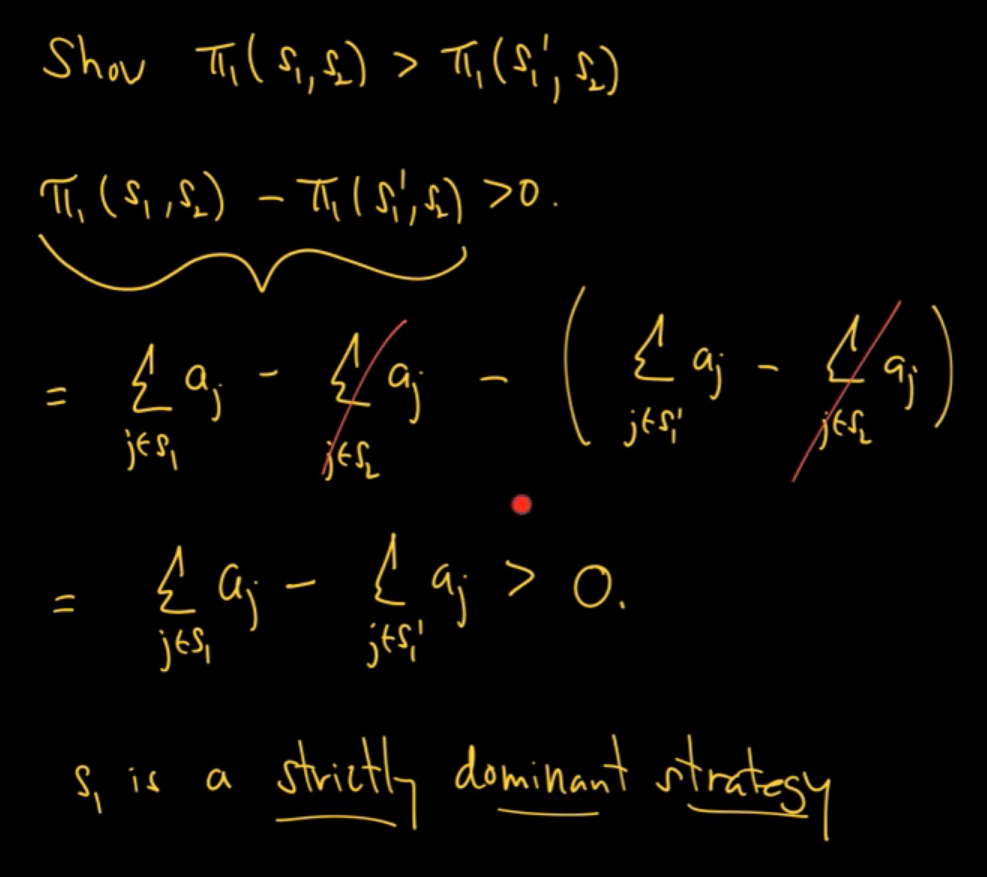 Show π₁(s₁, s₂) > π₁(s₁', s₂)
π₁(s₁, s₂) - π₁(s₁', s₂) > 0.
= Σ_{j∈s₁} aⱼ - Σ_{j∈s₂} aⱼ - ( Σ_{j∈s₁'} aⱼ - Σ_{j∈s₂} aⱼ )
= Σ_{j∈s₁} aⱼ - Σ_{j∈s₁'} aⱼ > 0.
s₁ is a strictly dominant strategy